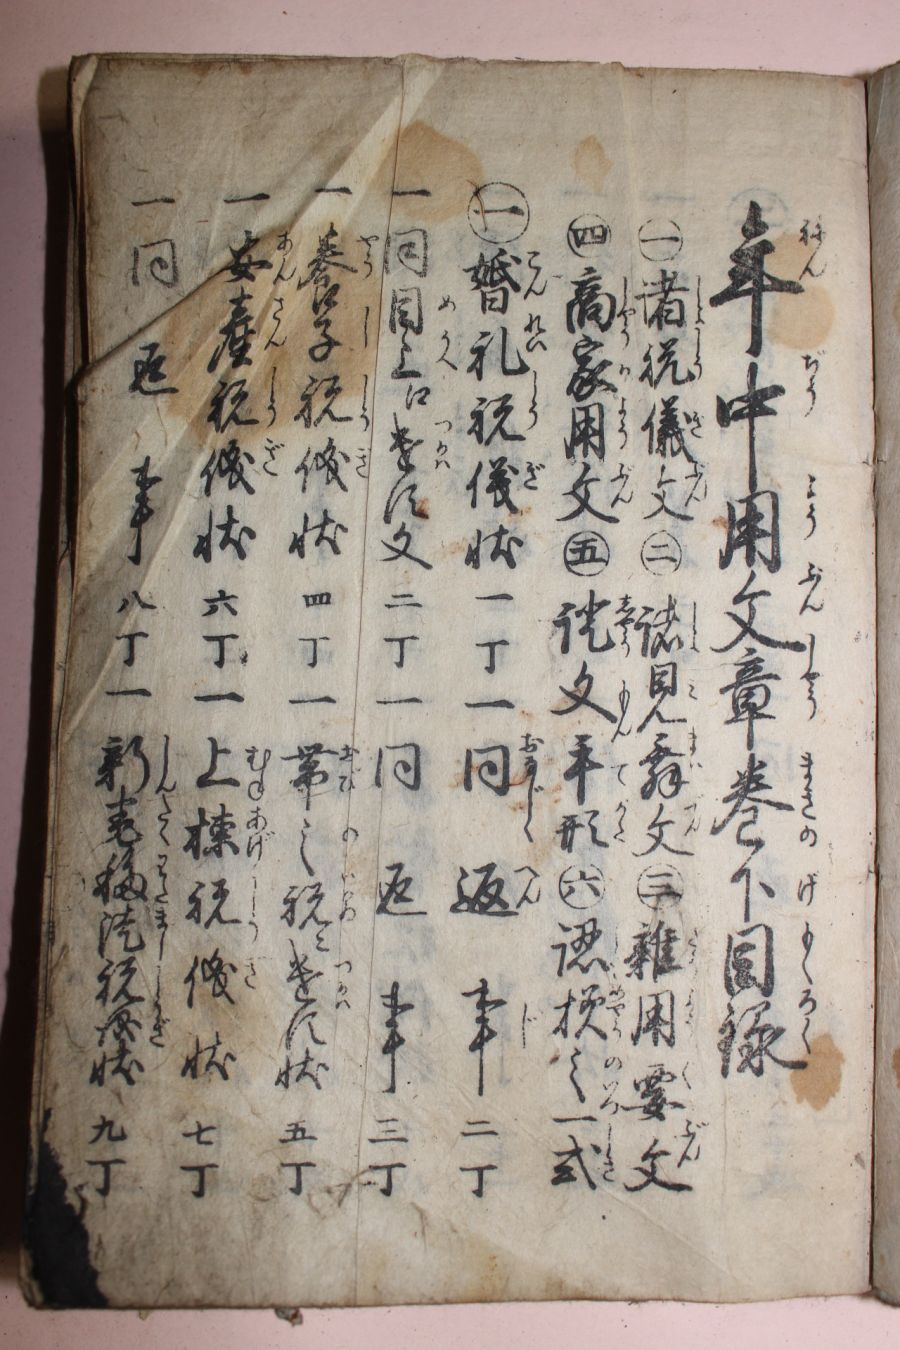 年中用文章巻下目録
㊀諸祝儀文㊁諸見舞文㊂雑用要文
㊃商家用文㊄証文手形㊅認様之一式
㊀婚礼祝儀状 一丁 一同返事 二丁
一同目上江遣ス文 二丁 一同返事 三丁
一養子祝儀状 四丁 一帯之祝ニ遣ス状 五丁
一安産祝儀状 六丁 一上棟祝儀状 七丁
一同返事 八丁 一新宅移徙祝儀状 九丁